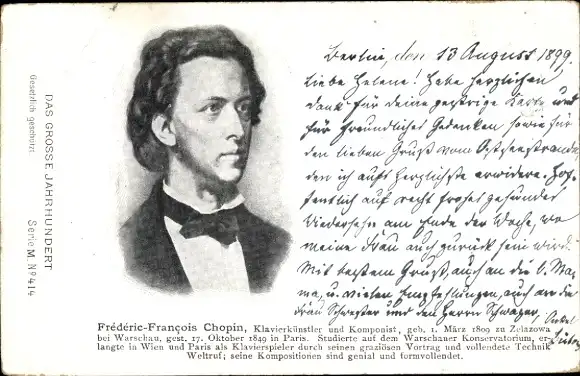 DAS GROSSE JAHRHUNDERT Serie M. Nº 414
Gesetzlich geschützt.
Berlin, den 13 August 1899.
Liebe Helene! Habe herzlichen
Dank für deine gestrige Karte und
für freundliches Gedenken sowie für
den lieben Gruß vom Ostseestrande
den ich aufs herzlichste erwidere. Hof-
fentlich auf recht frohes gesundes
Wiedersehn am Ende der Woche, wo
meine Frau auch zurück sein wird.
Mit bestem Gruß, auch an die l. Ma-
ma, u. vielen Empfehlungen, auch an die
Frau Schwester und den Herrn Schwager, Onkel
Frédéric-François Chopin, Klavierkünstler und Komponist, geb. 1. März 1809 zu Zelazowa
bei Warschau, gest. 17. Oktober 1849 in Paris. Studierte auf dem Warschauer Konservatorium, er-
langte in Wien und Paris als Klavierspieler durch seinen graziösen Vortrag und vollendete Technik
Weltruf; seine Kompositionen sind genial und formvollendet.